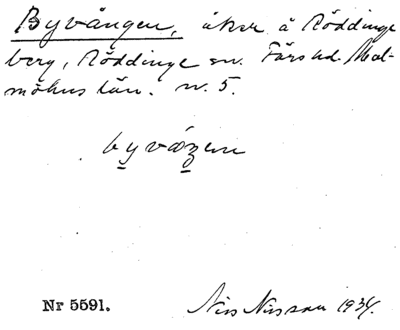 Byvången, åker å Röddinge
berg, Röddinge sn. Färs hd. Mal-
möhus län. n. 5.
byvázen
Nr 5591.
Nils Nilsson 1934.